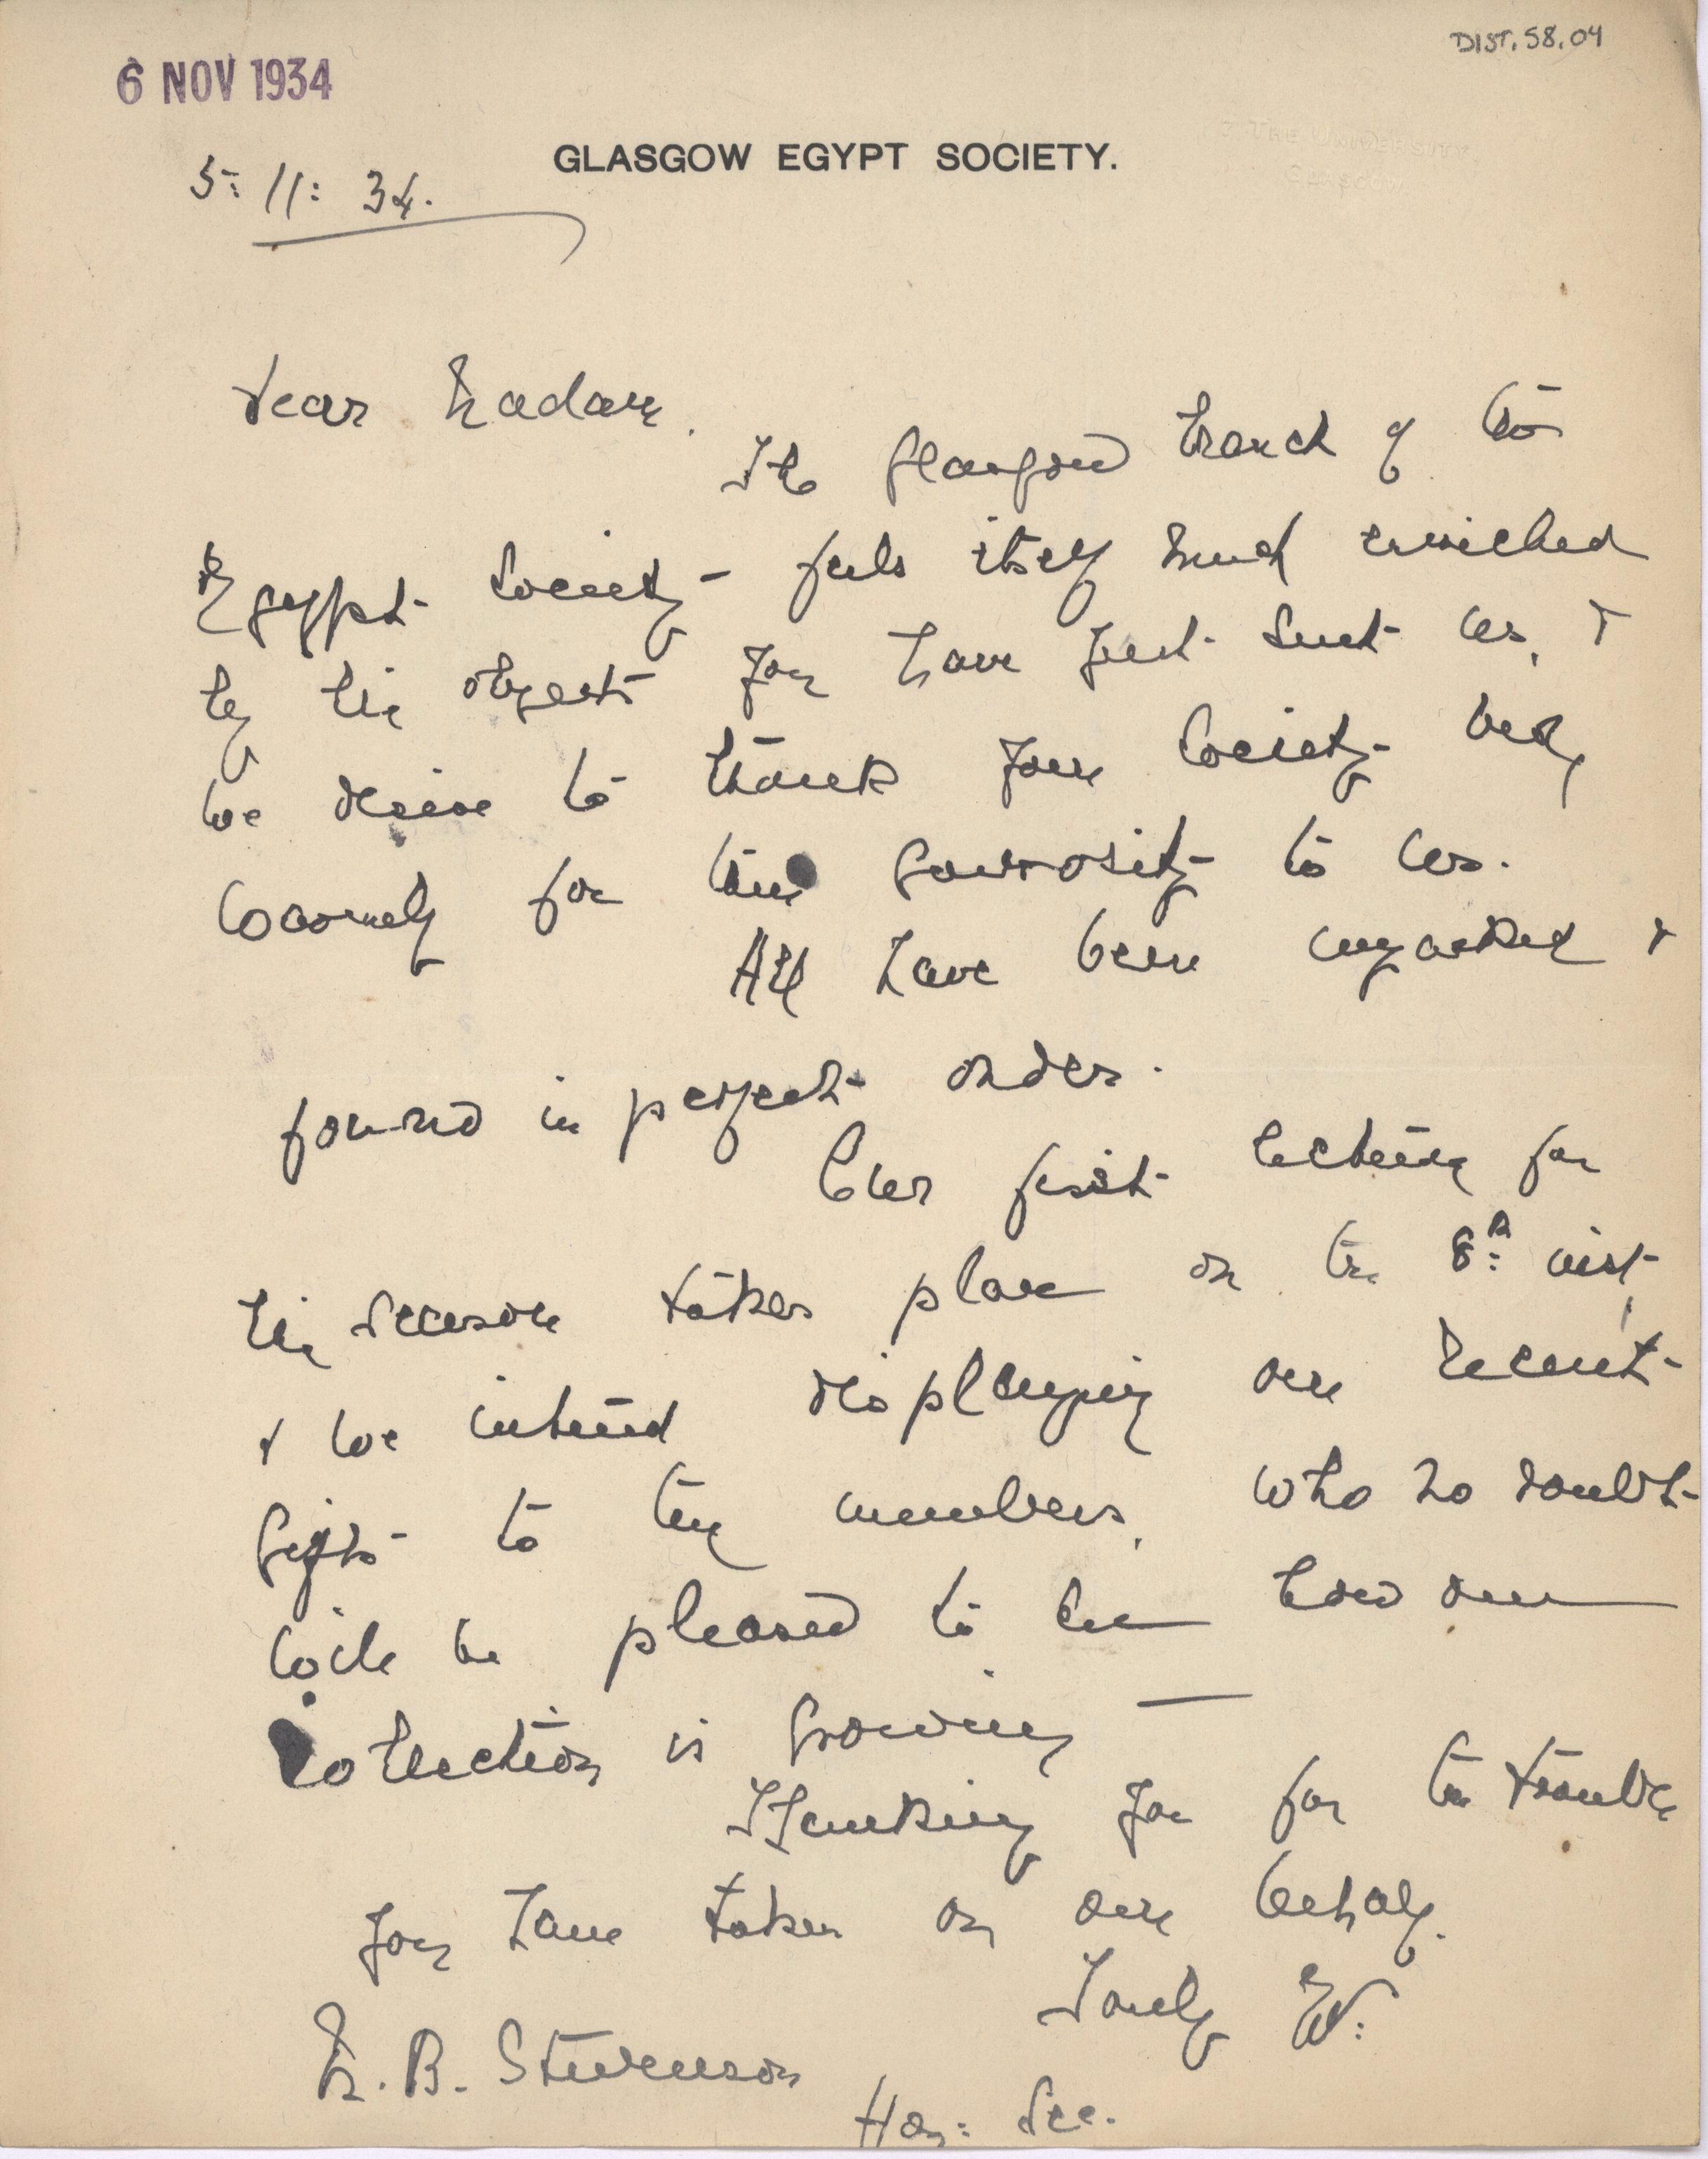 DIST. 58.04
6 NOV 1934
GLASGOW EGYPT SOCIETY.
THE UNIVERSITY
GLASGOW
5: 11: 34.
Dear Madam.
The Glasgow branch of the
Egypt Society - feels itself much enriched
by the objects you have just sent us, &
we desire to thank your Society very
warmly for their generosity to us.
All have been unpacked &
found in perfect order.
Our first lecture for
the season takes place on the 8th inst,
& we intend displaying our recent
gifts to the members, who no doubt
will be pleased to see how our
collection is growing —
Thanking you for the trouble
you have taken on our behalf.
Yours
M. B. Stevenson
Hon: Sec.